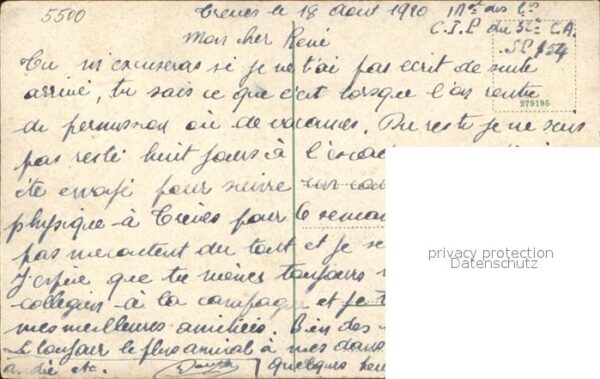 5500 Trèves le 18 août 1920 Mon des Cie
Mon cher René C.I.P. du 32e C.A.
SP 154
Tu m'excuseras si je ne t'ai pas écrit de suite
279195
arrivé, tu sais ce que c'est lorsque l'on rentre
de permission ou de vacances. Du reste je ne suis
pas resté huit jours à
été envoyé pour suivre un
physique à Trèves pour 6 semain
pas mécontent du tout et je
J'espère que tu mènes toujours
collégien à la campagne et je t
mes meilleures amitiés. Bien des
Le bonjour le plus amical à mes dames
André etc. quelques
privacy protection
Datenschutz